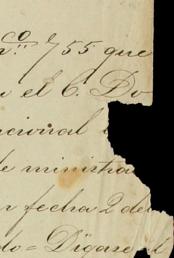 n.co 755 que
e el C. Do
ncional
de ministra
n fecha 2 del
do = Dígase